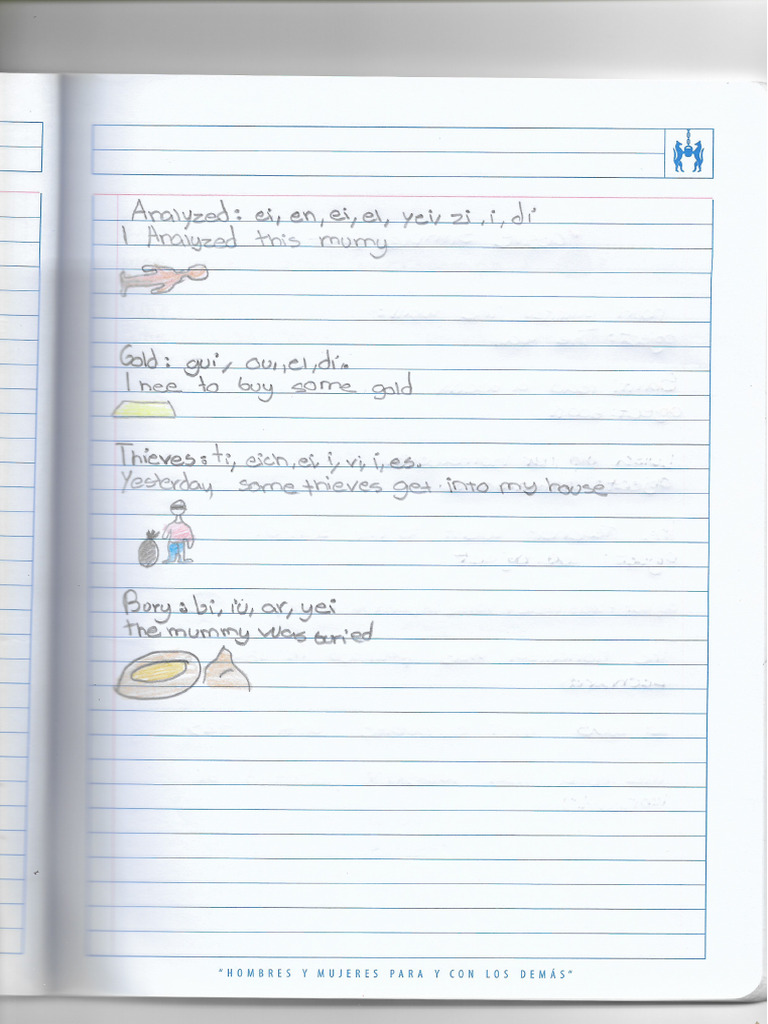 Analyzed: ei, en, ei, el, yei, zi, i, di
I Analyzed this mumy
Gold: gui, ou, el, di.
I nee to buy some gold
Thieves: ti, eich, ei, i, vi, i, es.
Yesterday some thieves get into my house
Bory: bi, iu, ar, yei
the mummy was buried
"HOMBRES Y MUJERES PARA Y CON LOS DEMÁS"